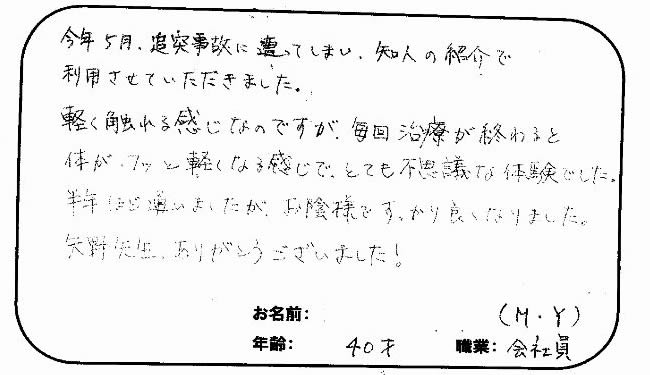 今年5月、追突事故に遭ってしまい、知人の紹介で
利用させていただきました。
軽く触れる感じなのですが、毎回治療が終わると
体がフッと軽くなる感じで、とても不思議な体験でした。
半年ほど通いましたが、お陰様ですっかり良くなりました。
矢野先生、ありがとうございました!
お名前: (M・Y)
年齢: 40才 職業: 会社員